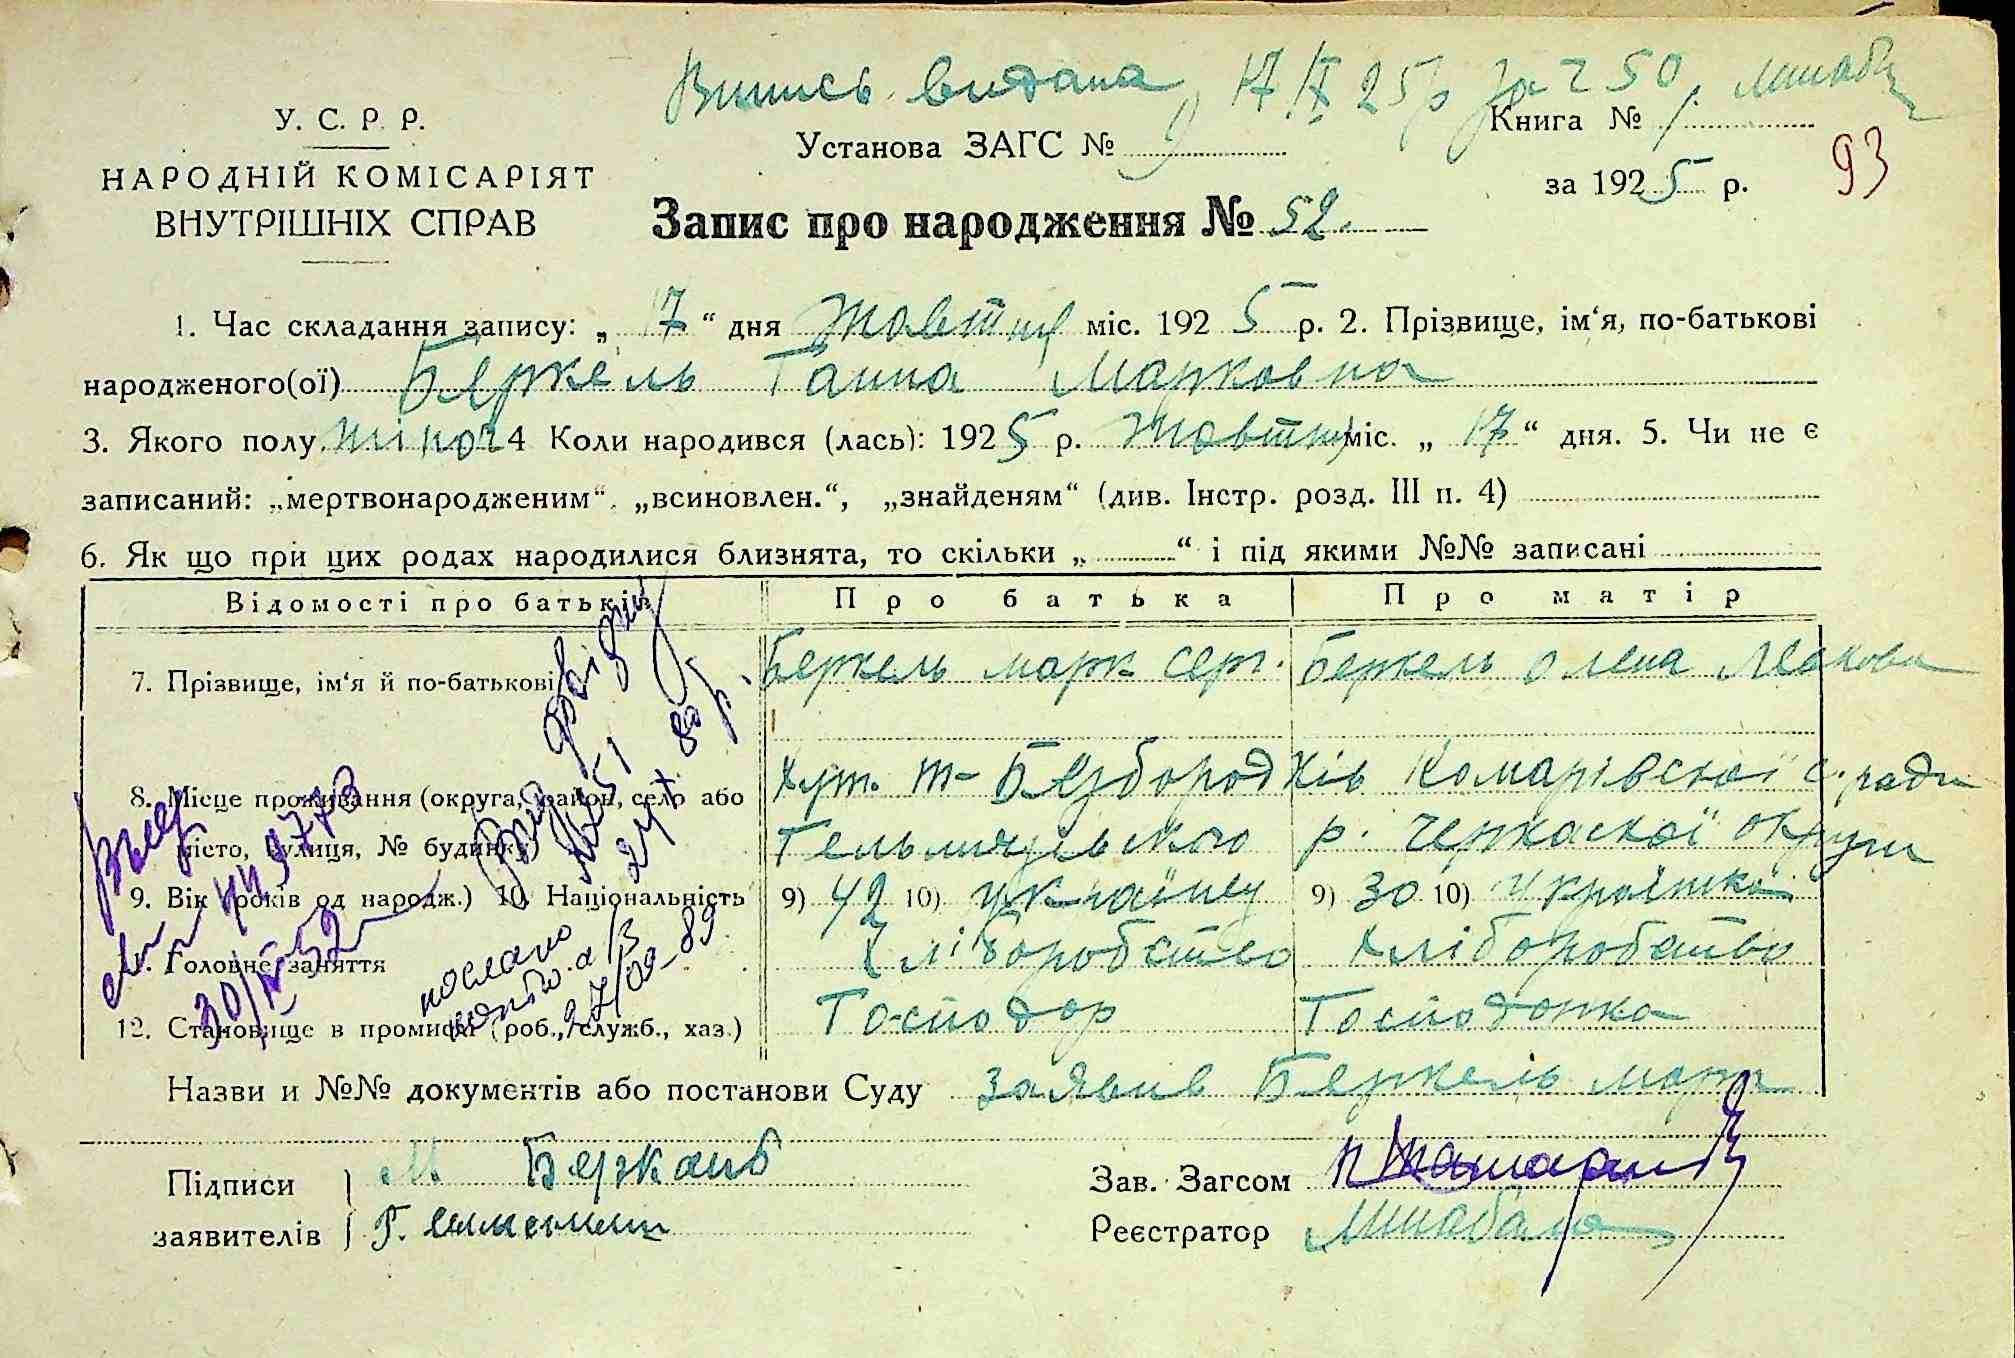 Випись видана 17/X 25 р за № 250.
У. С. Р. Р.
НАРОДНІЙ КОМІСАРІЯТ
ВНУТРІШНІХ СПРАВ
Установа ЗАГС №
Книга № 1
за 1925 р.
93
Запис про народження № 52.
1. Час складання запису: „ 17 “ дня Жовтня міс. 1925 р. 2. Прізвище, ім‘я, по-батькові
народженого(ої) Беркель Ганна Марковна
3. Якого полу жіноч 4 Коли народився (лась): 1925 р. Жовтня міс. „ 17 “ дня. 5. Чи не є
записаний: „мертвонародженим“, „всиновлен.“, „знайденям“ (див. Інстр. розд. III п. 4)
6. Як що при цих родах народилися близнята, то скільки „ “ і під якими №№ записані
Відомості про батьків Про батька Про матір
7. Прізвище, ім‘я й по-батькові Беркель Марк Серг. Беркель Олена Левкова
8. Місце проживання (округа, район, село або Хут. Т-Безбородків Комарівської с. ради
місто, вулиця, № будинку) Гельмязівського р. Черкаської округи
9. Вік (років од народж.) 10. Національність 9) 42 10) Українец 9) 30 10) Українка
11. Головне заняття Хліборобство Хліборобство
12. Становище в промислі (роб., служб., хаз.) Господар Господарка
30/IV-52
27/09-89
Назви и №№ документів або постанови Суду Заявив Беркель Марк
Підписи М Беркаль
заявителів Г.
Зав. Загсом
Реєстратор